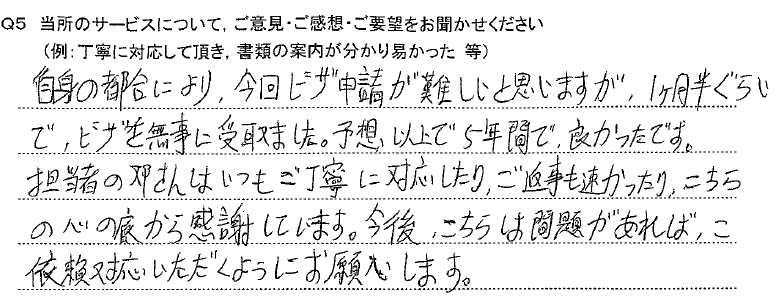 Q5 当所のサービスについて，ご意見・ご感想・ご要望をお聞かせください
（例：丁寧に対応して頂き，書類の案内が分かり易かった 等）
自身の都合により，今回ビザ申請が難しいと思いますが，1ヶ月半ぐらい
で，ビザを無事に受取ました。予想以上で5年間で，良かったです。
担当者の邓さんはいつもご丁寧に対応したり，ご返事も速かったり，こちら
の心の底から感謝しています。今後，こちらは問題があれば，ご
依頼対応いただくようにお願いします。